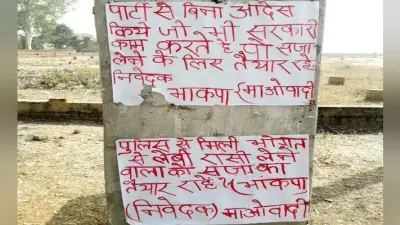 पार्टी से बिना आदेस
किये जो भी सरकारी
काम करते है वो सजा
लेने के लिए तैयार रहे
निवेदक
भाकपा (माओवादी)
पुलिस से मिली भोगत
से लेबी रासी लेने
वाला को सजा को
तैयार राहे (भाकपा
(निवेदक) माओवादी)